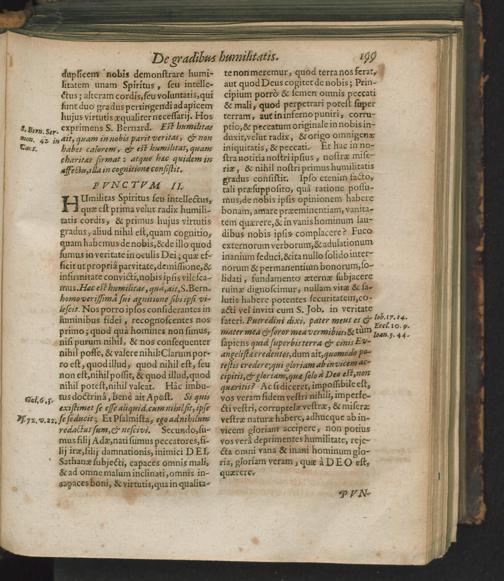 De gradibus humilitatis. 199
duplicem nobis demonstrare humi-
litatem unam Spiritus, seu intelle-
ctus; alteram cordis, seu voluntatis, qui
sunt duo gradus pertingendi ad apicem
hujus virtutis æqualiter necessarij. Hos
exprimens S. Bernard. Est humilitas
ait, quam in nobis parit veritas, & non
habet calorem, & est humilitas, quam
charitas format: atque hæc quidem in
affectu, illa in cognitione consistit.
S. Bern. Ser-
mon. 42. in
Cant.
PVNCTVM II.
HUmilitas Spiritus seu intellectus,
quæ est prima velut radix humili-
tatis cordis, & primus hujus virtutis
gradus, aliud nihil est, quam cognitio,
quam habemus de nobis, & de illo quod
sumus in veritate in oculis Dei; quæ ef-
ficit ut propriâ parvitate, demissione, &
infirmitate convicti, nobis ipsis vilesca-
mus. Hæc est humilitas, quâ, ait, S. Bern.
homo verissimâ sui agnitione sibi ipsi vi-
lescit. Nos porro ipsos considerantes in
luminibus fidei, recognoscentes nos
primo; quod quà homines non simus,
nisi purum nihil, & nos consequenter
nihil posse, & valere nihil: Clarum por-
ro est, quod illud, quod nihil est, seu
non est, nihil possit, & quod illud, quod
nihil potest, nihil valeat. Hâc imbu-
tus doctrinâ, benè ait Apost. Si quis
existimet se esse aliquid, cum nihil sit, ipse
se seducit; Et Psalmista, ego ad nihilum
redactus sum, & nescivi. Secundo, su-
mus filij Adæ, nati sumus peccatores, fi-
lij iræ, filij damnationis, inimici DEI,
Sathanæ subjecti, capaces omnis mali,
& ad omne malum inclinati, omnis in-
capaces boni, & virtutis, qua in qualita-
Gal. 6. 5.
Ps. 72. v. 22.
te non meremur, quod terra nos ferat,
aut quod Deus cogitet de nobis; Prin-
cipium porrò & semen omnis peccati
& mali, quod perpetrari potest super
terram, aut in inferno puniri, corru-
ptio, & peccatum originale in nobis in-
duxit, velut radix, & origo omnigenæ
iniquitatis, & peccati. Et hæc in no-
stra notitia nostri ipsius, nostræ mise-
riæ, & nihil nostri primus humilitatis
gradus consistit. Ipso etenim facto,
tali præsupposito, quâ ratione possu-
mus, de nobis ipsis opinionem habere
bonam, amare præeminentiam, vanita-
tem quærere, & in vanis hominum lau-
dibus nobis ipsis complacere? Fuco
externorum verborum, & adulationum
inanium seduci, & ita nullo solido inter-
norum & permanentium bonorum, so-
lidati, fundamento æternæ subjacere
ruinæ dignoscimur, nullam vitæ & sa-
lutis habere potentes securitatem, co-
acti vel inviti cum S. Job. in veritate
fateri. Putredini dixi, pater meus es &
mater mea & soror mea vermibus, & tùm
sapiens quid superbis terra & cinis Ev-
angelistæ credentes, dum ait, quomodo po-
testis credere; qui gloriam ab invicem ac-
cipitis, & gloriam, quæ solo à Deo est, non
quæritis? Ac si diceret, impossibile est,
vos veram fidem vestri nihili, imperfe-
cti vestri, corruptelæ vestræ, & miseræ
vestræ naturæ habere, adhucque ab in-
vicem gloriam accipere, non potius
vos verâ deprimentes humilitate, reje-
cta omni vana & inani hominum glo-
ria, gloriam veram, quæ à DEO est,
quærere.
Iob. 17. 14.
Eccl. 10. 9.
Ioan. 5. 44.
PVN-